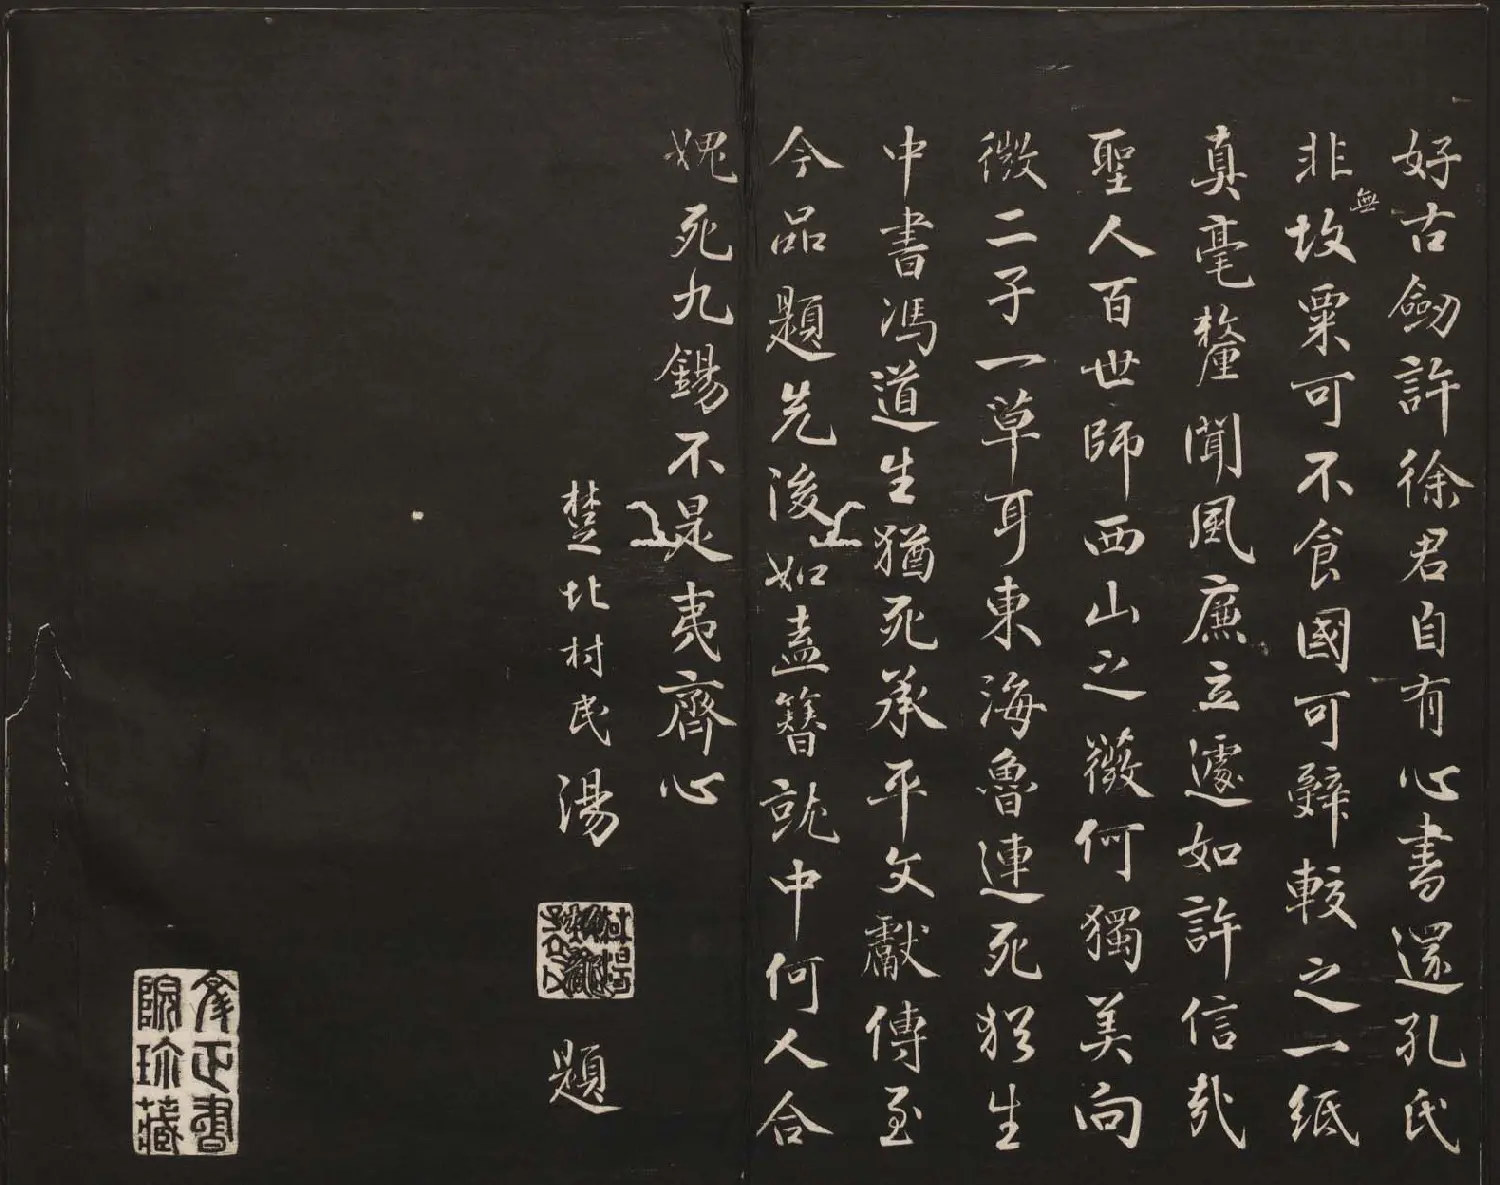 好古劔許徐君自有心書還孔氏
非無故粟可不食國可辭較之一紙
真毫釐聞風廉立遽如許信哉
聖人百世師西山之薇何獨美向
微二子一草耳東海魯連死猶生
中書馮道生猶死承平文獻傳至
今品題先後如盍簪就中何人合
媿死九錫不是夷齊心
楚北村民湯
題
正書
院珎藏